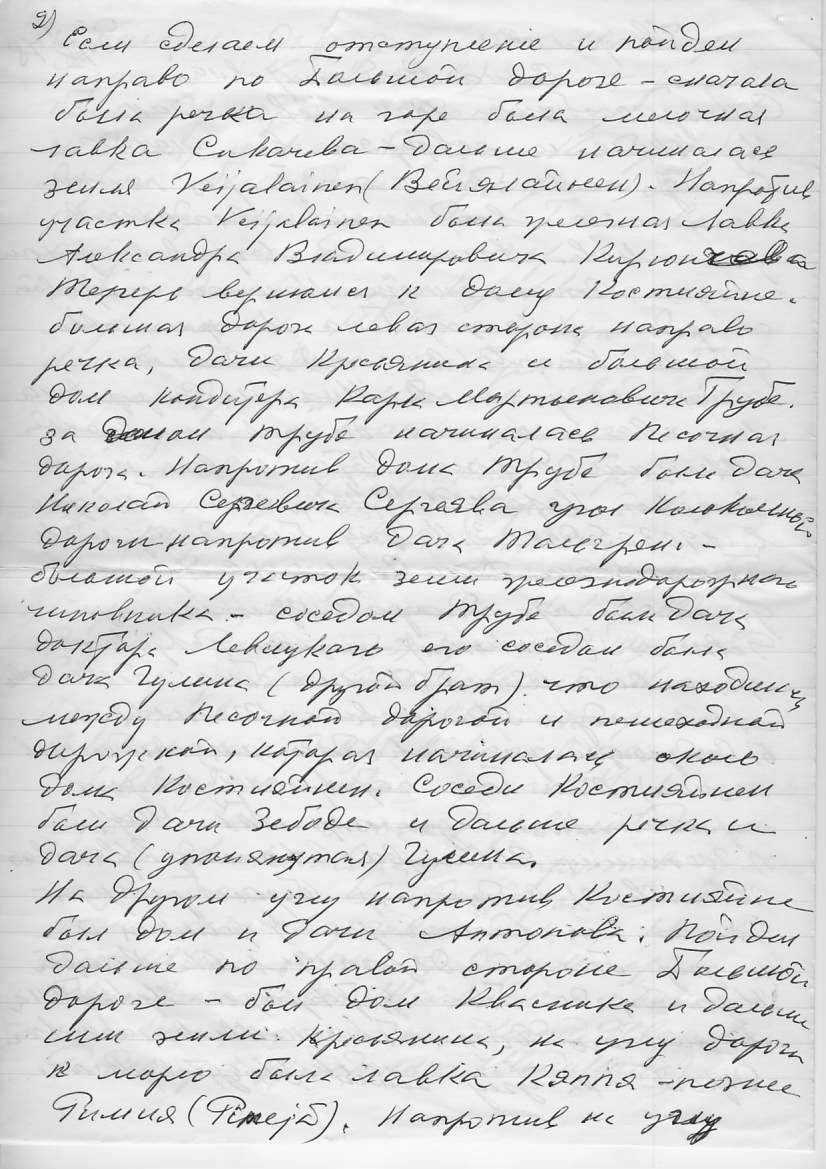 2)
Если сделаем отступление и пойдем
направо по Большой дороге – сначала
была речка на горе была мелочная
лавка Сикачева – Дальше начиналась
земля Veijalainen (Вейялайнен). Напротив
участка Veijalainen была железная лавка
Александра Владимировича
Теперь вернемся к дому Костияйне.
большая дорога левая сторона направо
речка, дачи Крсьянина и большой
дом кондитера Карла Мартыновича Трубе.
за домом Трубе начиналась Песочная
дорога. Напротив дома Трубе была дача
Николай Сергеевича Сергеева угол Колокольной
дороги напротив дача Тальгрен. –
большой участок земли железнодорожного
чиновника – соседом Трубе была дача
доктора Левицкого его соседом была
дача Гулина (другой брат) что находилась
между Песочной дорогой и пешеходной
дорожкой, которая начиналась около
дома Костияйнен. Соседи Костияйнен
были дачи Зебоде и дальше речка и
дача (упомянутая) Гулина.
На другом углу напротив Костияйне
был дом и дачи Антонова. Пойдем
дальше по правой стороне Большой
дороге – был дом Квасника и дальше
шли земли Крсьянина, на углу дороги
к морю была лавка Кяппя – позже
Римпя (). Напротив на углу